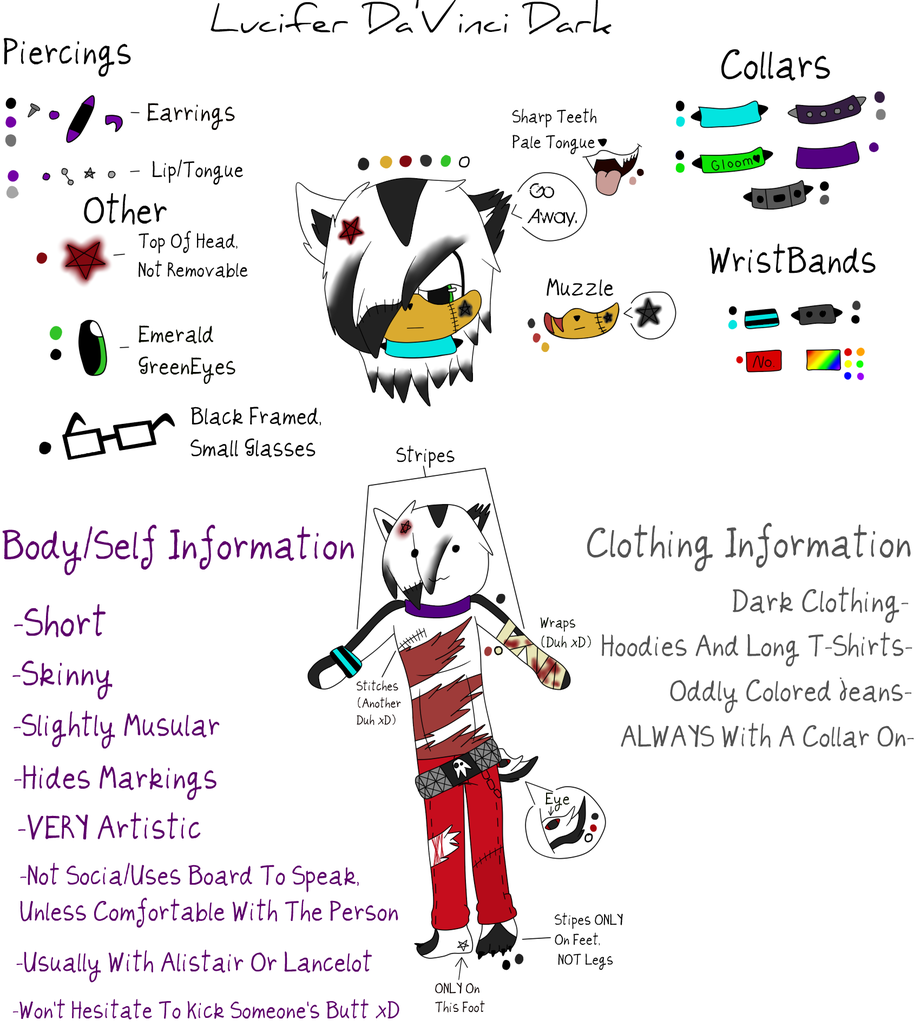 Lucifer Da'Vinci Dark
Piercings
- Earrings
- Lip/Tongue
Other
Top Of Head,
Not Removable
Emerald
GreenEyes
Black Framed,
Small Glasses
Sharp Teeth
Pale Tongue
Go
Away.
Muzzle
Collars
Gloom
WristBands
No.
Stripes
Body/Self Information
-Short
-Skinny
-Slightly Musular
-Hides Markings
-VERY Artistic
-Not Socia/Uses Board To Speak,
Unless Comfortable With The Person
-Usually With Alistair Or Lancelot
-Won't Hesitate To Kick Someone's Butt xD
Wraps
(Duh xD)
Stitches
(Another
Duh xD)
Eye
Stipes ONLY
On Feet,
NOT Legs
ONLY On
This Foot
Clothing Information
Dark Clothing-
Hoodies And Long T-Shirts-
Oddly Colored Jeans-
ALWAYS With A Collar On-